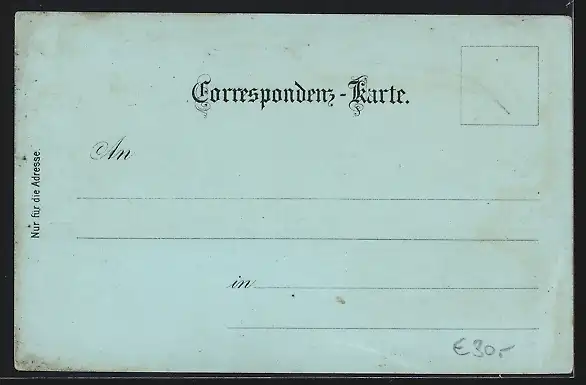 Correspondenz-Karte.
An
Nur für die Adresse.
in
€30,-